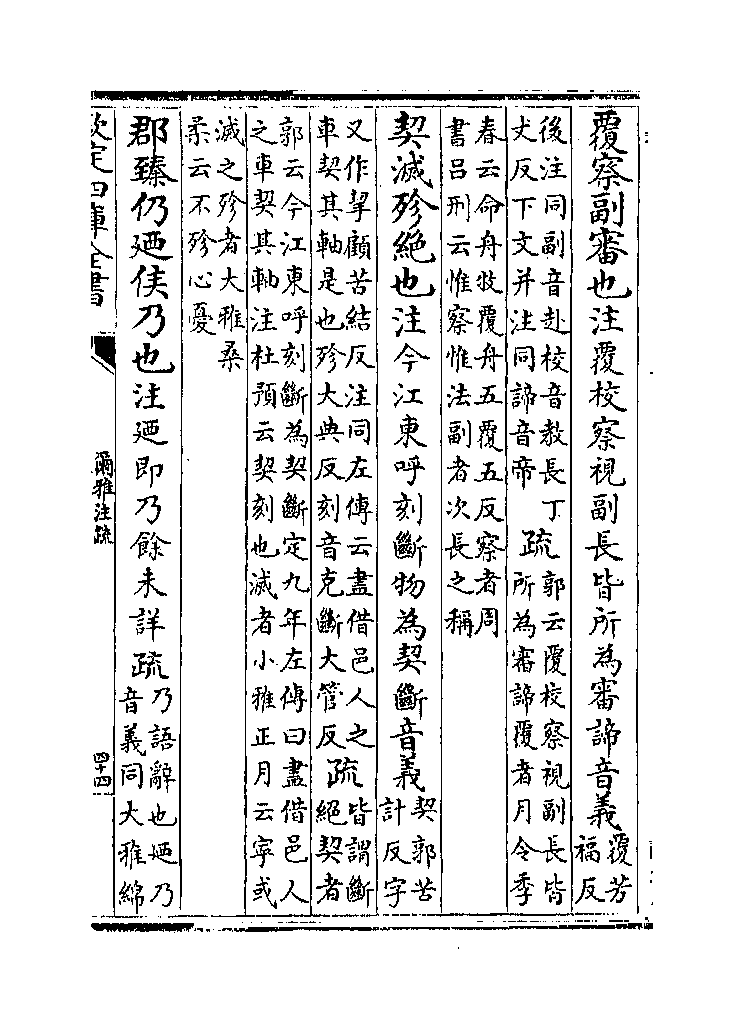 覆察副審也注覆校察視副長皆所為審諦音義覆芳福反
後注同副音赴校音教長丁丈反下文并注同諦音帝疏郭云覆校察視副長皆所為審諦覆者月令季
春云命舟牧覆舟五覆五反察者周書吕刑云惟察惟法副者次長之稱
契滅殄絕也注今江東呼刻斷物為契斷音義契郭苦計反字
又作挈顧苦結反注同左傳云盡借邑人之車契其軸是也殄大典反刻音克斷大管反疏皆謂斷絕契者
郭云今江東呼刻斷為契斷定九年左傳曰盡借邑人之車契其軸注杜預云契刻也滅者小雅正月云寧或
滅之殄者大雅桑柔云不殄心憂
郡臻仍迺侯乃也注迺即乃餘未詳疏乃語辭也迺乃音義同大雅綿
欽定四庫全書
爾雅注疏
四十四